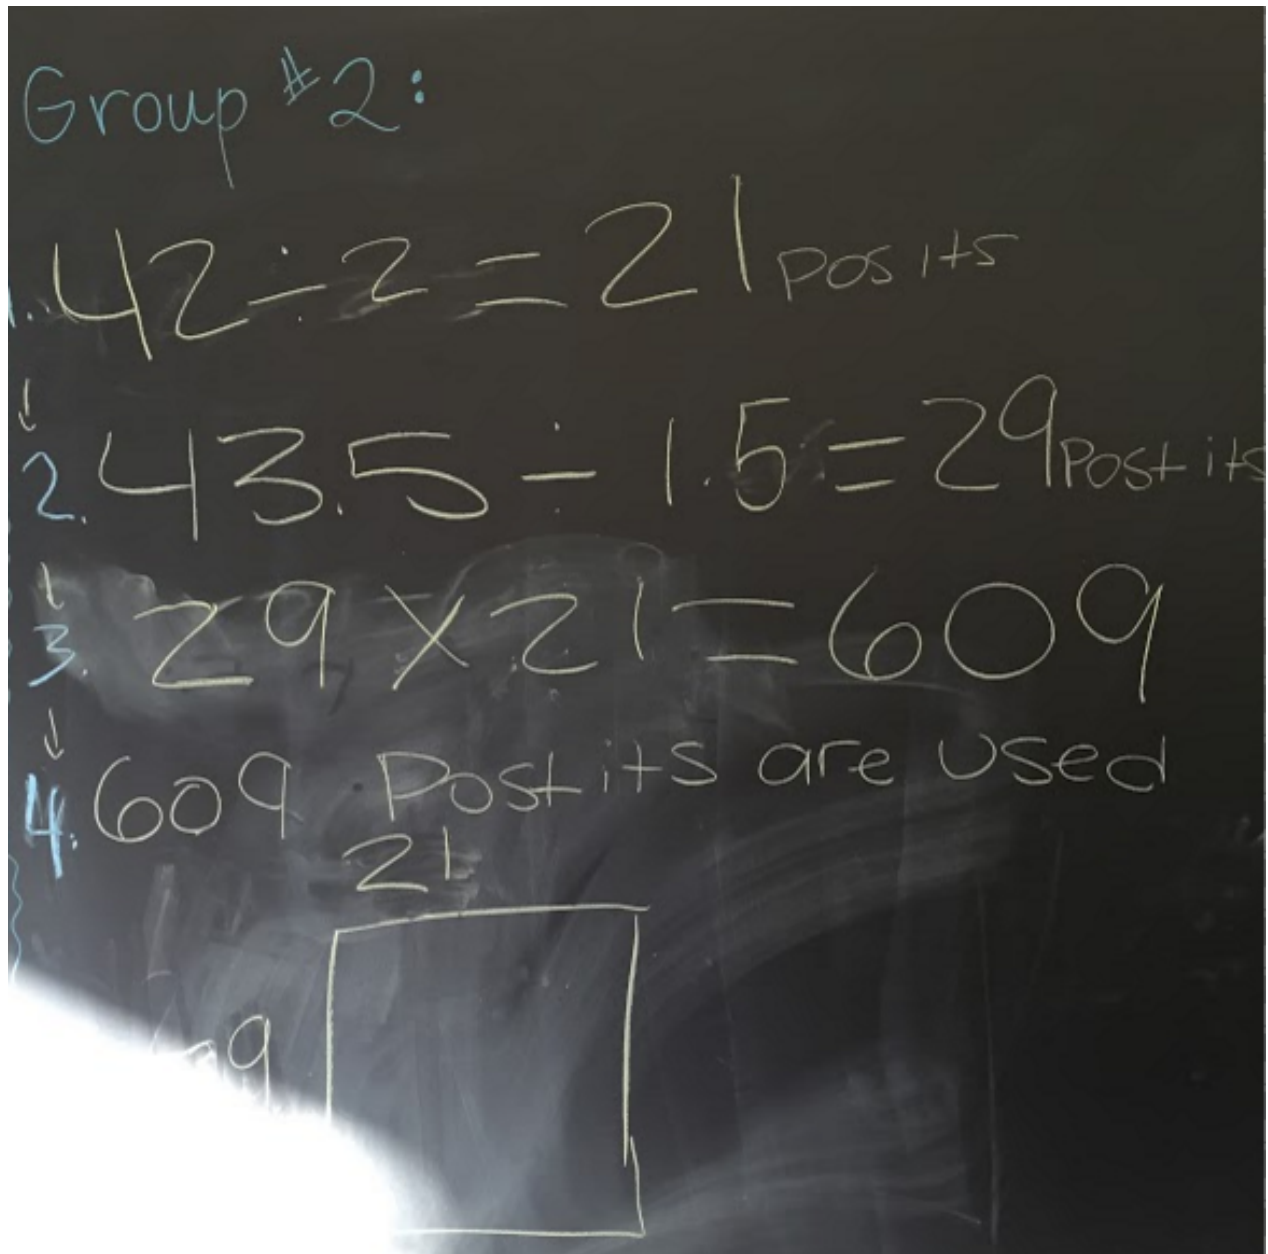 Group #2:
1. 42÷2=21 posits
↓
2. 43.5÷1.5=29 Post its
↓
3. 29×21=609
↓
4. 609 Postits are used
21